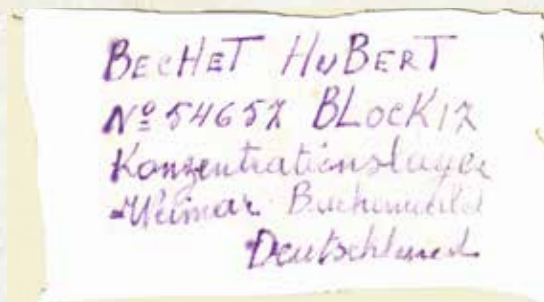 BECHET HUBERT
Nº 54657 BLOCK 17
Konzentrationslager
Weimar Buchenwald
Deutschland